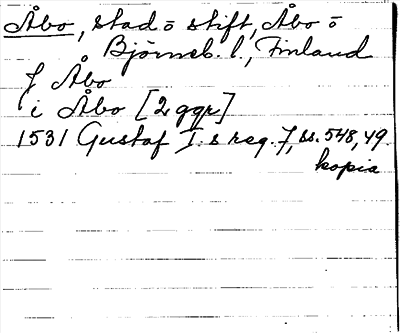 Åbo, stad o stift, Åbo o
Björneb. l., Finland
f Åbo
i Åbo [2 ggr]
1531 Gustaf I:s reg. 7, ss. 548, 49.
kopia